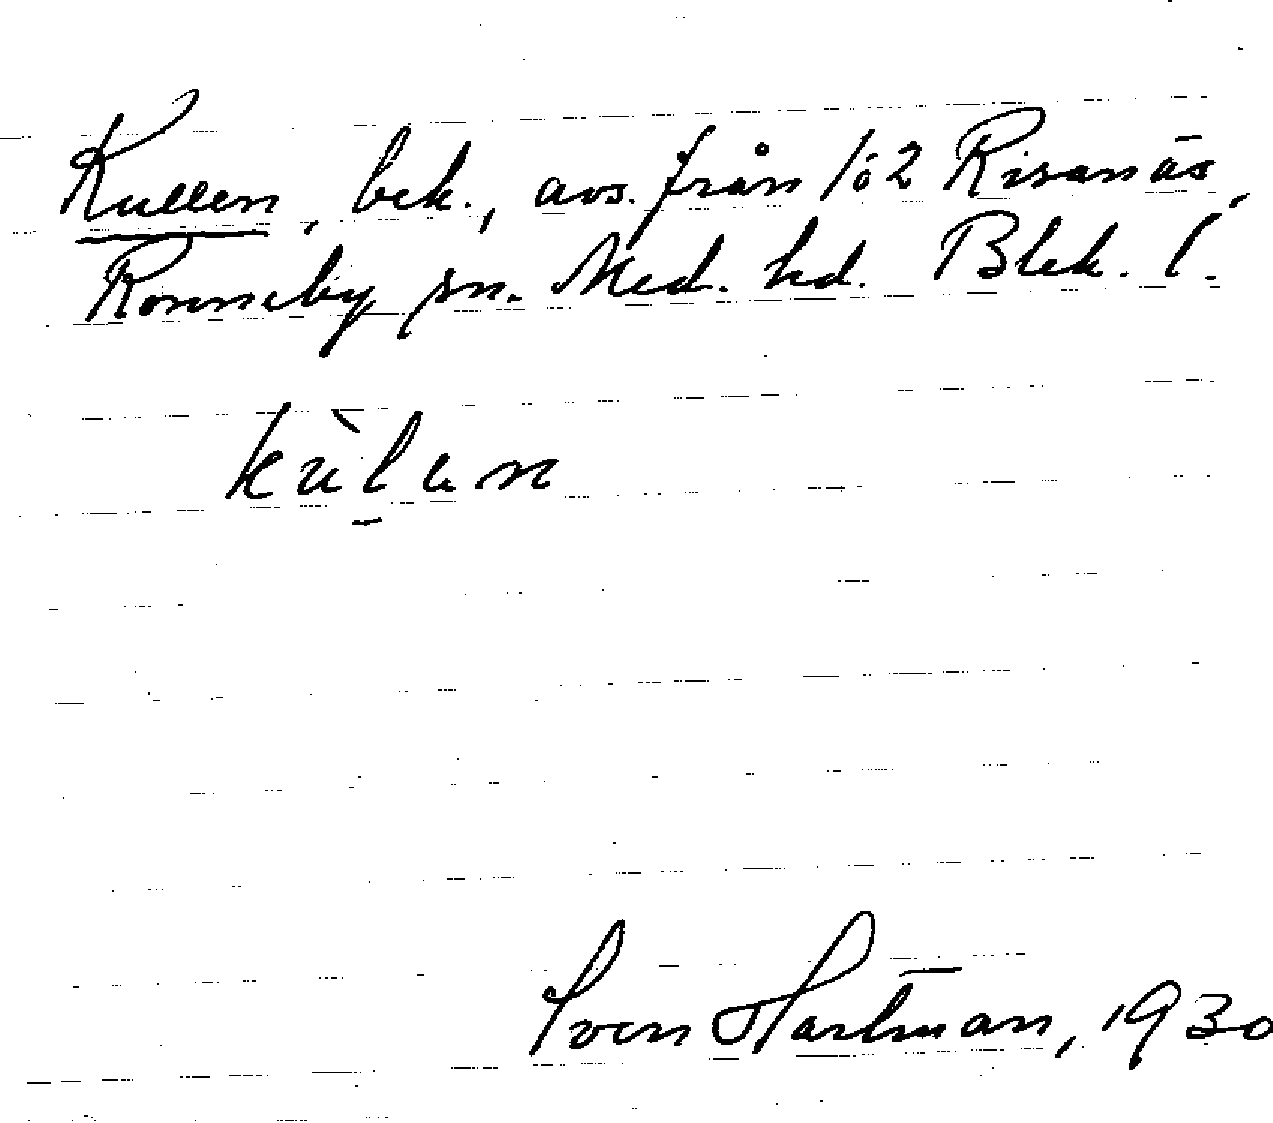 Kullen, bek., avs. från 1ö2 Risanäs,
Ronneby sn. Med. hd. Blek. l.
kùlun
Sven Hartman, 1930